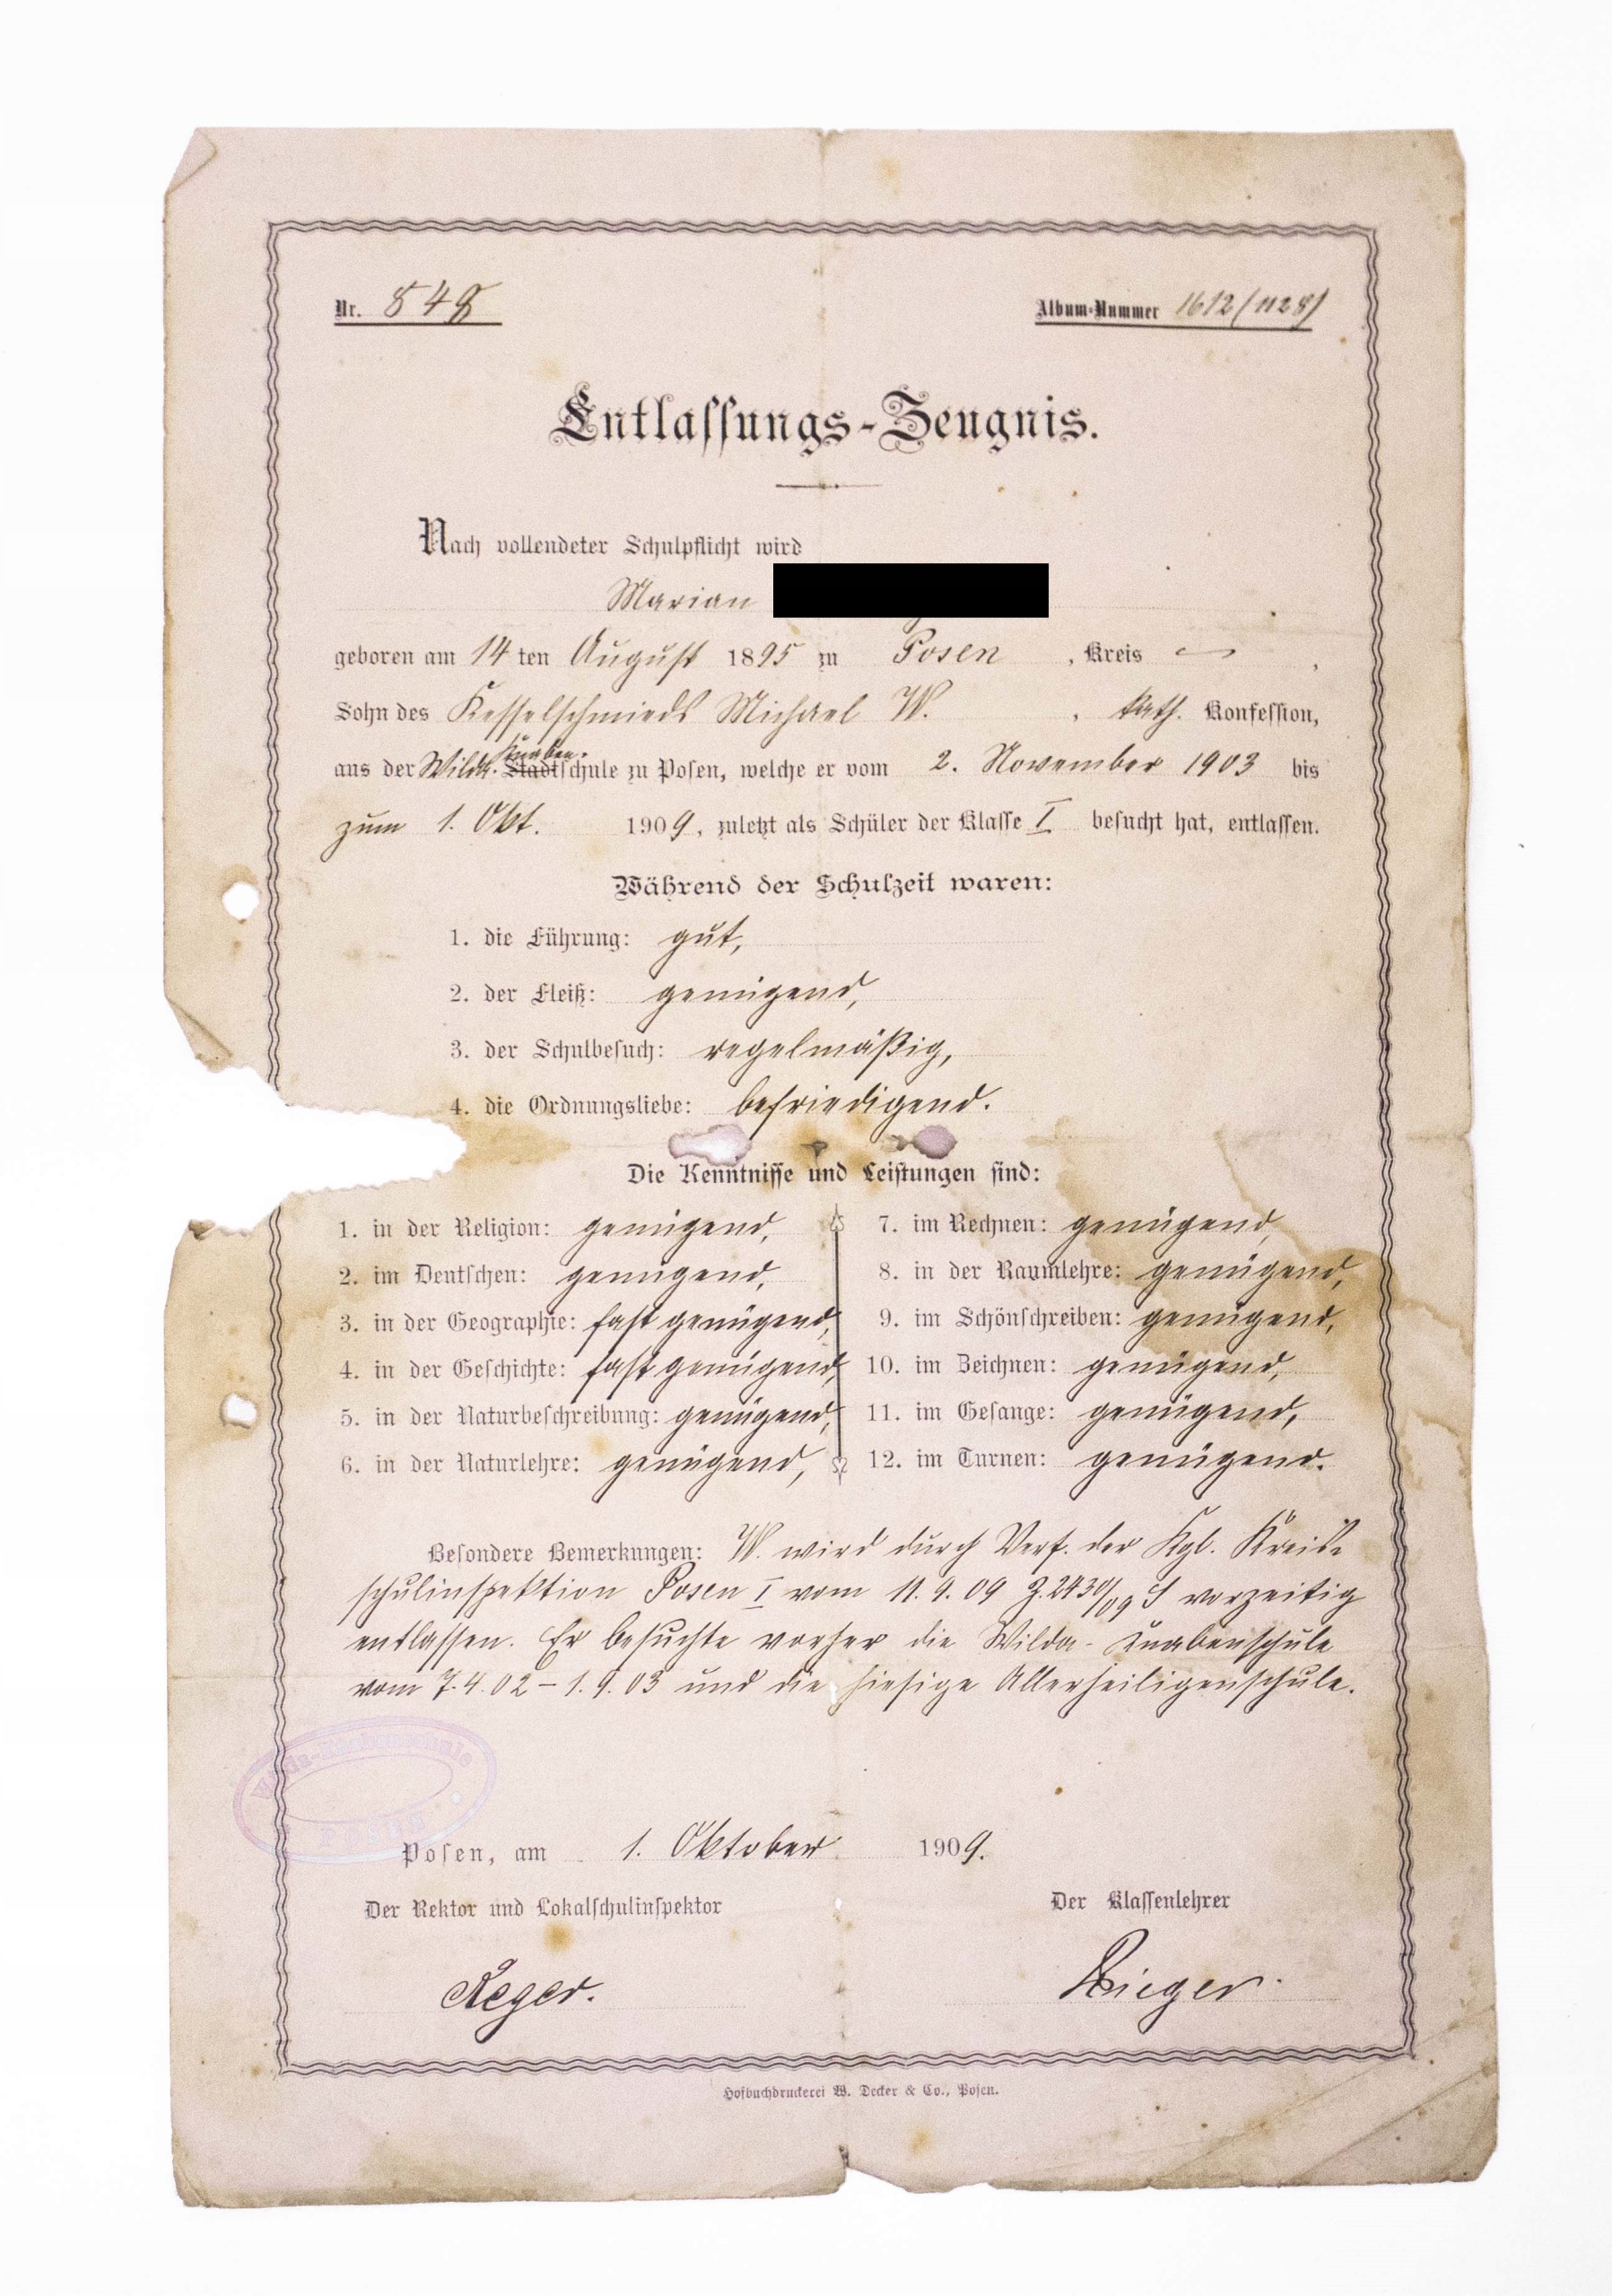 Nr. 548
Album-Nummer 1612/(1128)
Entlassungs-Zeugnis.
Nach vollendeter Schulpflicht wird
Marian
geboren am 14 ten August 1895 zu Posen, Kreis —,
Sohn des Kesselschmieds Michael W., kath. Konfession,
Knaben-
aus der Wilda-Stadtschule zu Posen, welche er vom 2. November 1903 bis
zum 1. Okt. 1909, zuletzt als Schüler der Klasse I besucht hat, entlassen.
Während der Schulzeit waren:
1. die Führung: gut,
2. der Fleiß: genügend,
3. der Schulbesuch: regelmäßig,
4. die Ordnungsliebe: befriedigend.
Die Kenntnisse und Leistungen sind:
1. in der Religion: genügend,
2. im Deutschen: genügend,
3. in der Geographie: fast genügend,
4. in der Geschichte: fast genügend,
5. in der Naturbeschreibung: genügend,
6. in der Naturlehre: genügend,
7. im Rechnen: genügend,
8. in der Raumlehre: genügend,
9. im Schönschreiben: genügend,
10. im Zeichnen: genügend,
11. im Gesange: genügend,
12. im Turnen: genügend.
Besondere Bemerkungen: W. wird durch Verf. der Kgl. Kreis-
schulinspektion Posen I vom 11. 9. 09 J. 2430/09 S vorzeitig
entlassen. Er besuchte vorher die Wilda-Knabenschule
vom 7. 4. 02 – 1. 9. 03 und die hiesige Allerheiligenschule.
POSEN
Posen, am 1. Oktober 1909.
Der Rektor und Lokalschulinspektor
Der Klassenlehrer
Reger.
Rieger.
Hofbuchdruckerei W. Decker & Co., Posen.